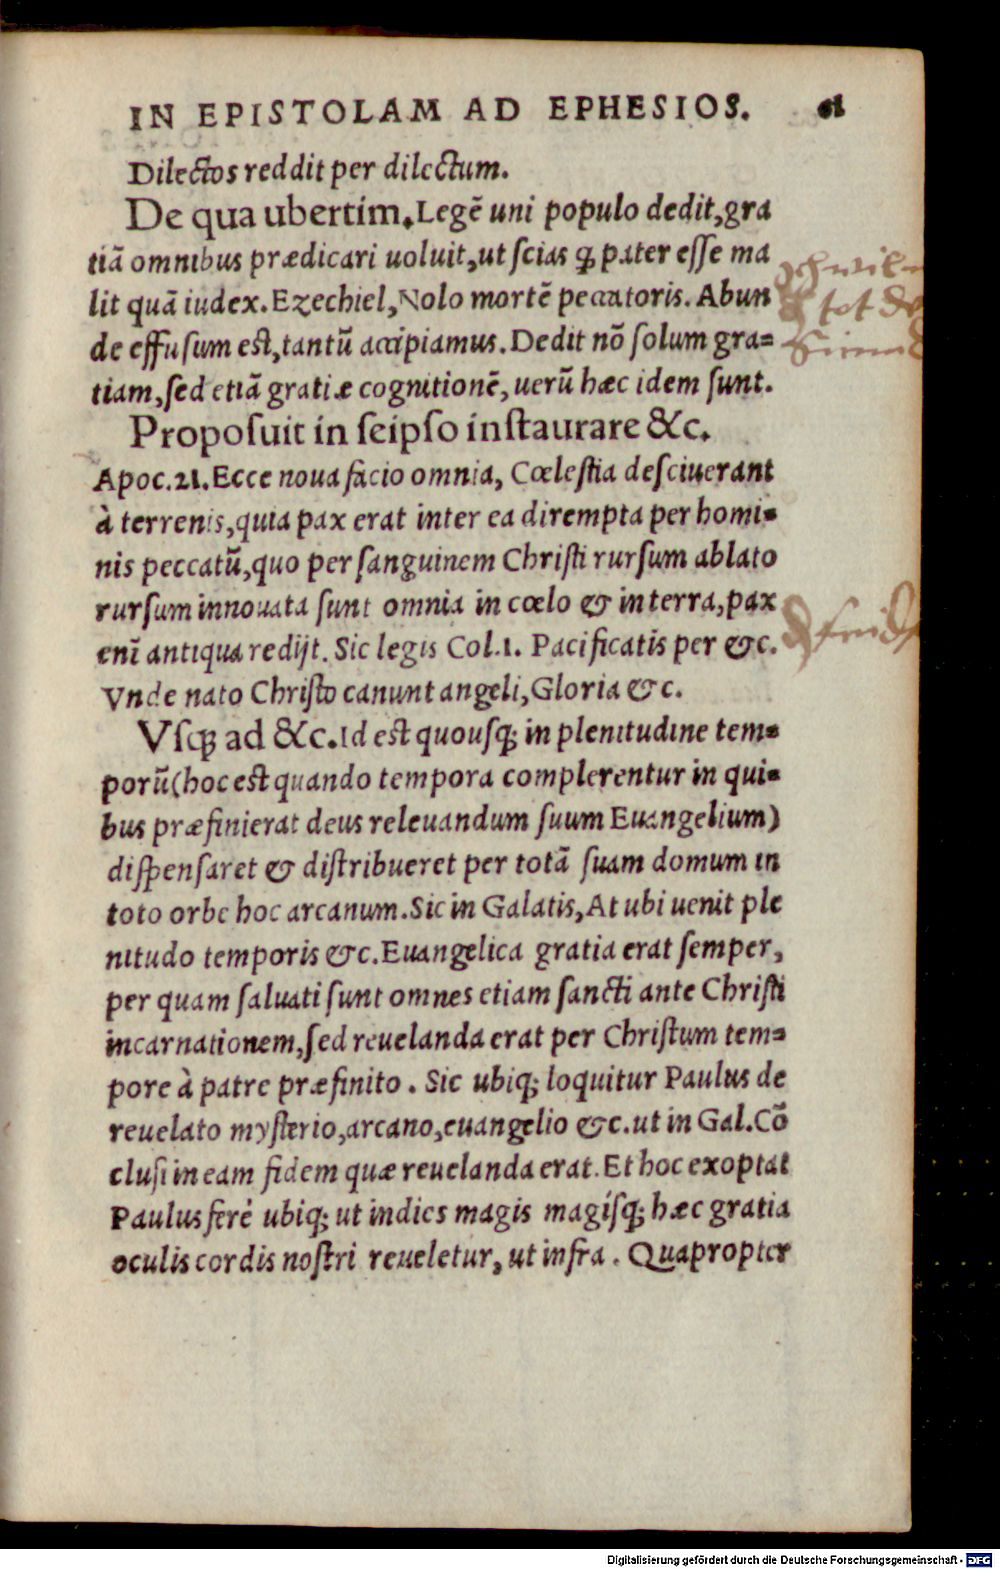 IN EPISTOLAM AD EPHESIOS. 61
Dilectos reddit per dilectum.
De qua ubertim. Legẽ uni populo dedit, gra
tiã omnibus prædicari uoluit, ut ſcias ꝙ pater eſſe ma
lit quã iudex. Ezechiel, Nolo mortẽ peccatoris. Abun
de effuſum eſt, tantũ accipiamus. Dedit nõ ſolum gra⸗
tiam, ſed etiã gratiæ cognitionẽ, uerũ hæc idem ſunt.
Propoſuit in ſeipſo inſtaurare &c.
Apoc. 21. Ecce noua facio omnia, Cœleſtia deſciuerant
à terrenis, quia pax erat inter ea dirempta per homi⸗
nis peccatũ, quo per ſanguinem Chriſti rurſum ablato
rurſum innouata ſunt omnia in cœlo & in terra, pax
enĩ antiqua redijt. Sic legis Col. 1. Pacificatis per &c.
Vnde nato Chriſto canunt angeli, Gloria &c.
Vſq; ad &c. Id eſt quouſq; in plenitudine tem⸗
porũ (hoc eſt quando tempora complerentur in qui⸗
bus præfinierat deus releuandum ſuum Euangelium)
diſpenſaret & diſtribueret per totã ſuam domum in
toto orbe hoc arcanum. Sic in Galatis, At ubi uenit ple
nitudo temporis &c. Euangelica gratia erat ſemper,
per quam ſaluati ſunt omnes etiam ſancti ante Chriſti
incarnationem, ſed reuelanda erat per Chriſtum tem⸗
pore à patre præfinito. Sic ubiq; loquitur Paulus de
reuelato myſterio, arcano, euangelio &c. ut in Gal. Cõ
cluſi in eam fidem quæ reuelanda erat. Et hoc exoptat
Paulus ferè ubiq; ut indies magis magiſq; hæc gratia
oculis cordis noſtri reueletur, ut infra. Quapropter
Digitalisierung gefördert durch die Deutsche Forschungsgemeinschaft - DFG